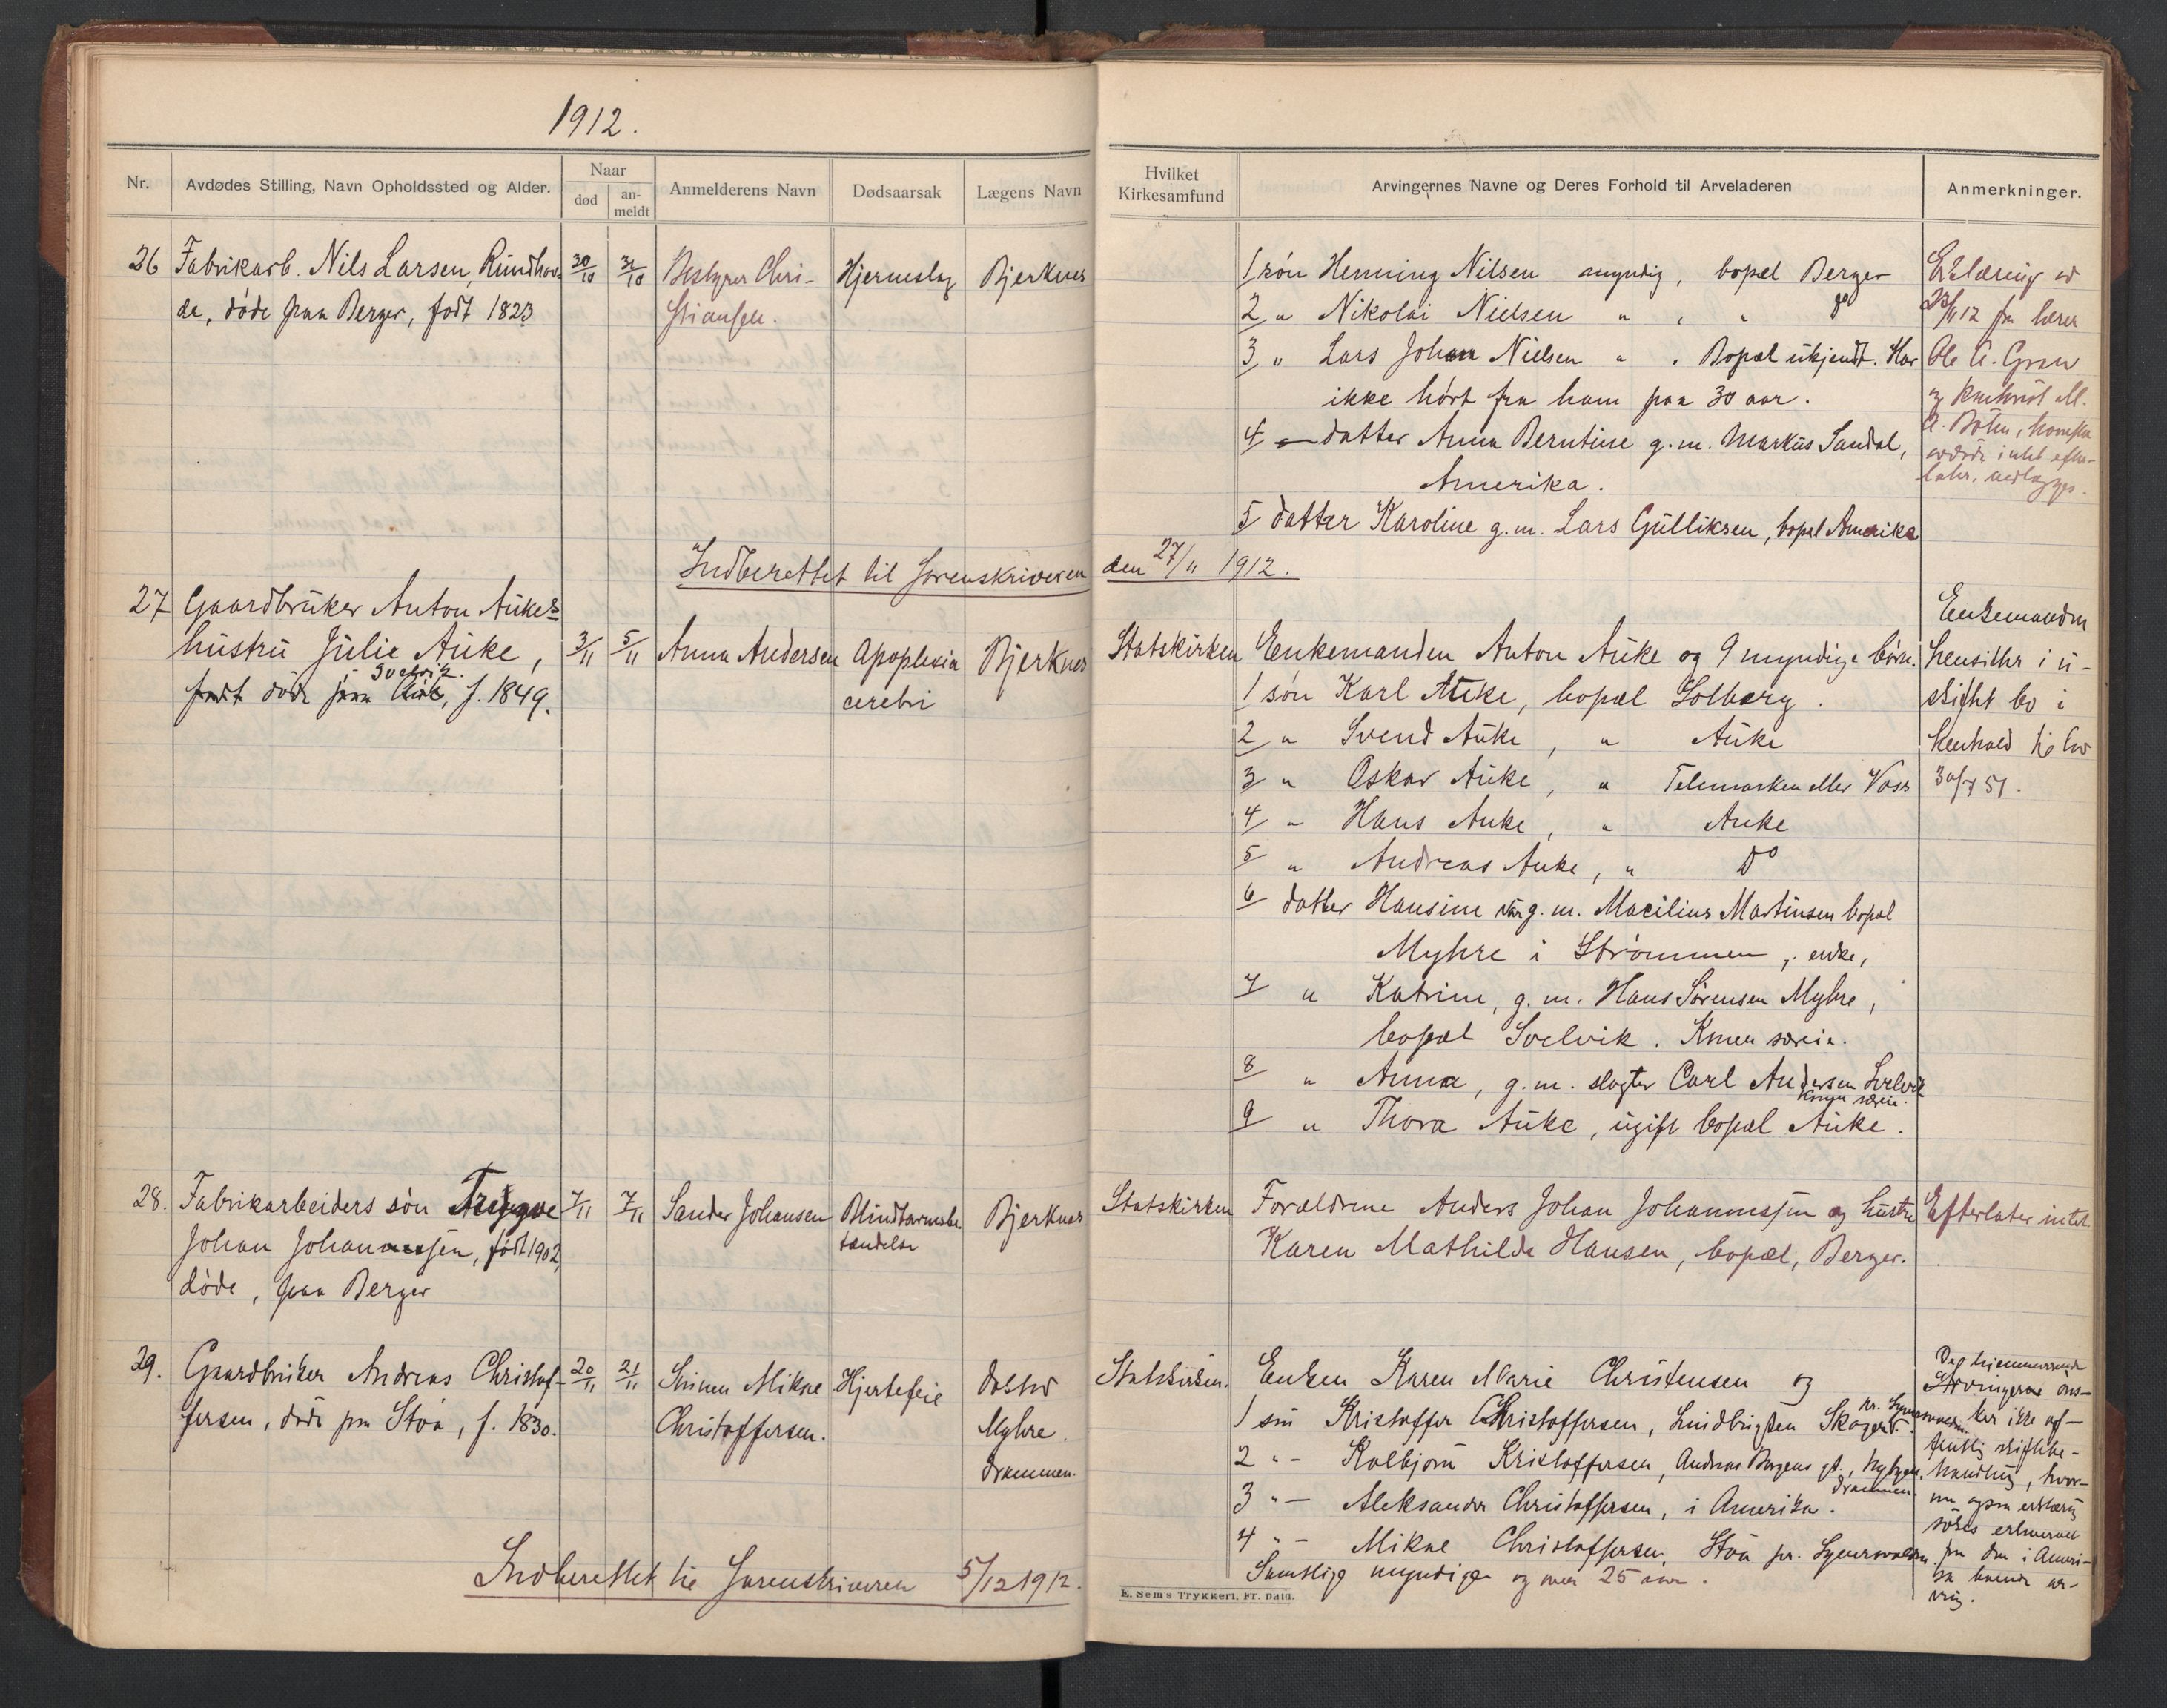 1912.
Nr.
Avdødes Stilling, Navn Opholdssted og Alder.
Naar
død
an-
meldt
Anmelderens Navn
Dødsaarsak
Lægens Navn
26 Fabrikarb. Nils Larsen, Rundhov- 30/10 31/10 Bestyrer Chri- Hjerneslag Bjerknes
de, døde paa Berger, født 1823 stiansen.
Indberettet til Sorenskriveren
27 Gaardbruker Anton Aukes
hustru Julie Auke, 3/11 5/11 Anna Andersen Apoplexia Bjerknes
Svelvik.
døde paa f. 1849. cerebri
28. Fabrikarbeiders søn Trygve 7/11 7/11 Sander Johansen Blindtarmsbe- Bjerknes
Johan Johannessen, født 1902, tændelse
døde, paa Berger
29. Gaardbruker Andreas Christof- 20/11 21/11 Mikae Hjertefeil Doktor
fersen, døde paa Stoa, f. 1830. Christoffersen. Myhre.
Drammen.
Indberettet til Sorenskriveren 5/12 1912.
Hvilket
Kirkesamfund
Arvingernes Navne og Deres Forhold til Arveladeren
Anmerkninger.
1 søn Henning Nilsen myndig, bopæl Berger
2 " Nikolai Nielsen " , " do
3 " Lars Johan Nielsen " . Bopæl ukjendt. Har
ikke hørt fra ham paa 30 aar.
4 datter Anna Berntine g.m. Markus Sandal,
Amerika.
5 datter Karoline g.m. Lars Gulliksen, bopæl Amerika
Erklæring av
23/11 12 fra lærer
Ole A. Gran
og M.
A. Bøhn, hvorefter
avdøde intet efter-
later, vedlægges.
den 27/11 1912.
Statskirken Enkemanden Anton Auke og 9 myndige børn.
1 søn Karl Auke, bopæl Solberg.
2 " Svend Auke, " Auke
3 " Oskar Auke, " Telemarken eller Voss
4 " Hans Auke, " Auke
5 " Andreas Auke, " Do
6 datter Hansine var g.m. Macilius Martinsen bopæl
Myhre i Strømmen, enke,
7 " Katrine, g.m. Hans Sørensen Myhre,
bopæl Svelvik. Kmen særeie.
8 " Anna, g.m. slagter Carl Andersen Svelvik
Kmen særeie.
9 " Thora Auke, ugift bopæl Auke.
Enkemanden
hensitter i u-
skiftet bo i
henhold til lov
30/7 51.
Statskirken Forældrene Anders Johan Johannessen og hustru
Karen Mathilde Hansen, bopæl, Berger.
Efterlater intet.
Statskirken. Enken Karen Marie Christensen og
1 søn Kristoffer Christoffersen, Skoger
2 " - Kolbjørn Kristoffersen, Andreas Bergens gt., Nybyen,
Drammen.
3 " - Aleksander Christoffersen, i Amerika.
4 " - Mikae Christoffersen, Stoa pr.
Samtlige myndige og over 25 aar.
De hjemmeværende
Arvingerne øns-
ker ikke of-
fentlig skiftebe-
handling, hvor-
om ogsaa erklæring
søkes erhvervet
fra den i Ameri-
ka boende ar-
ving.
E. Sem's Trykkeri, Fr.hald.